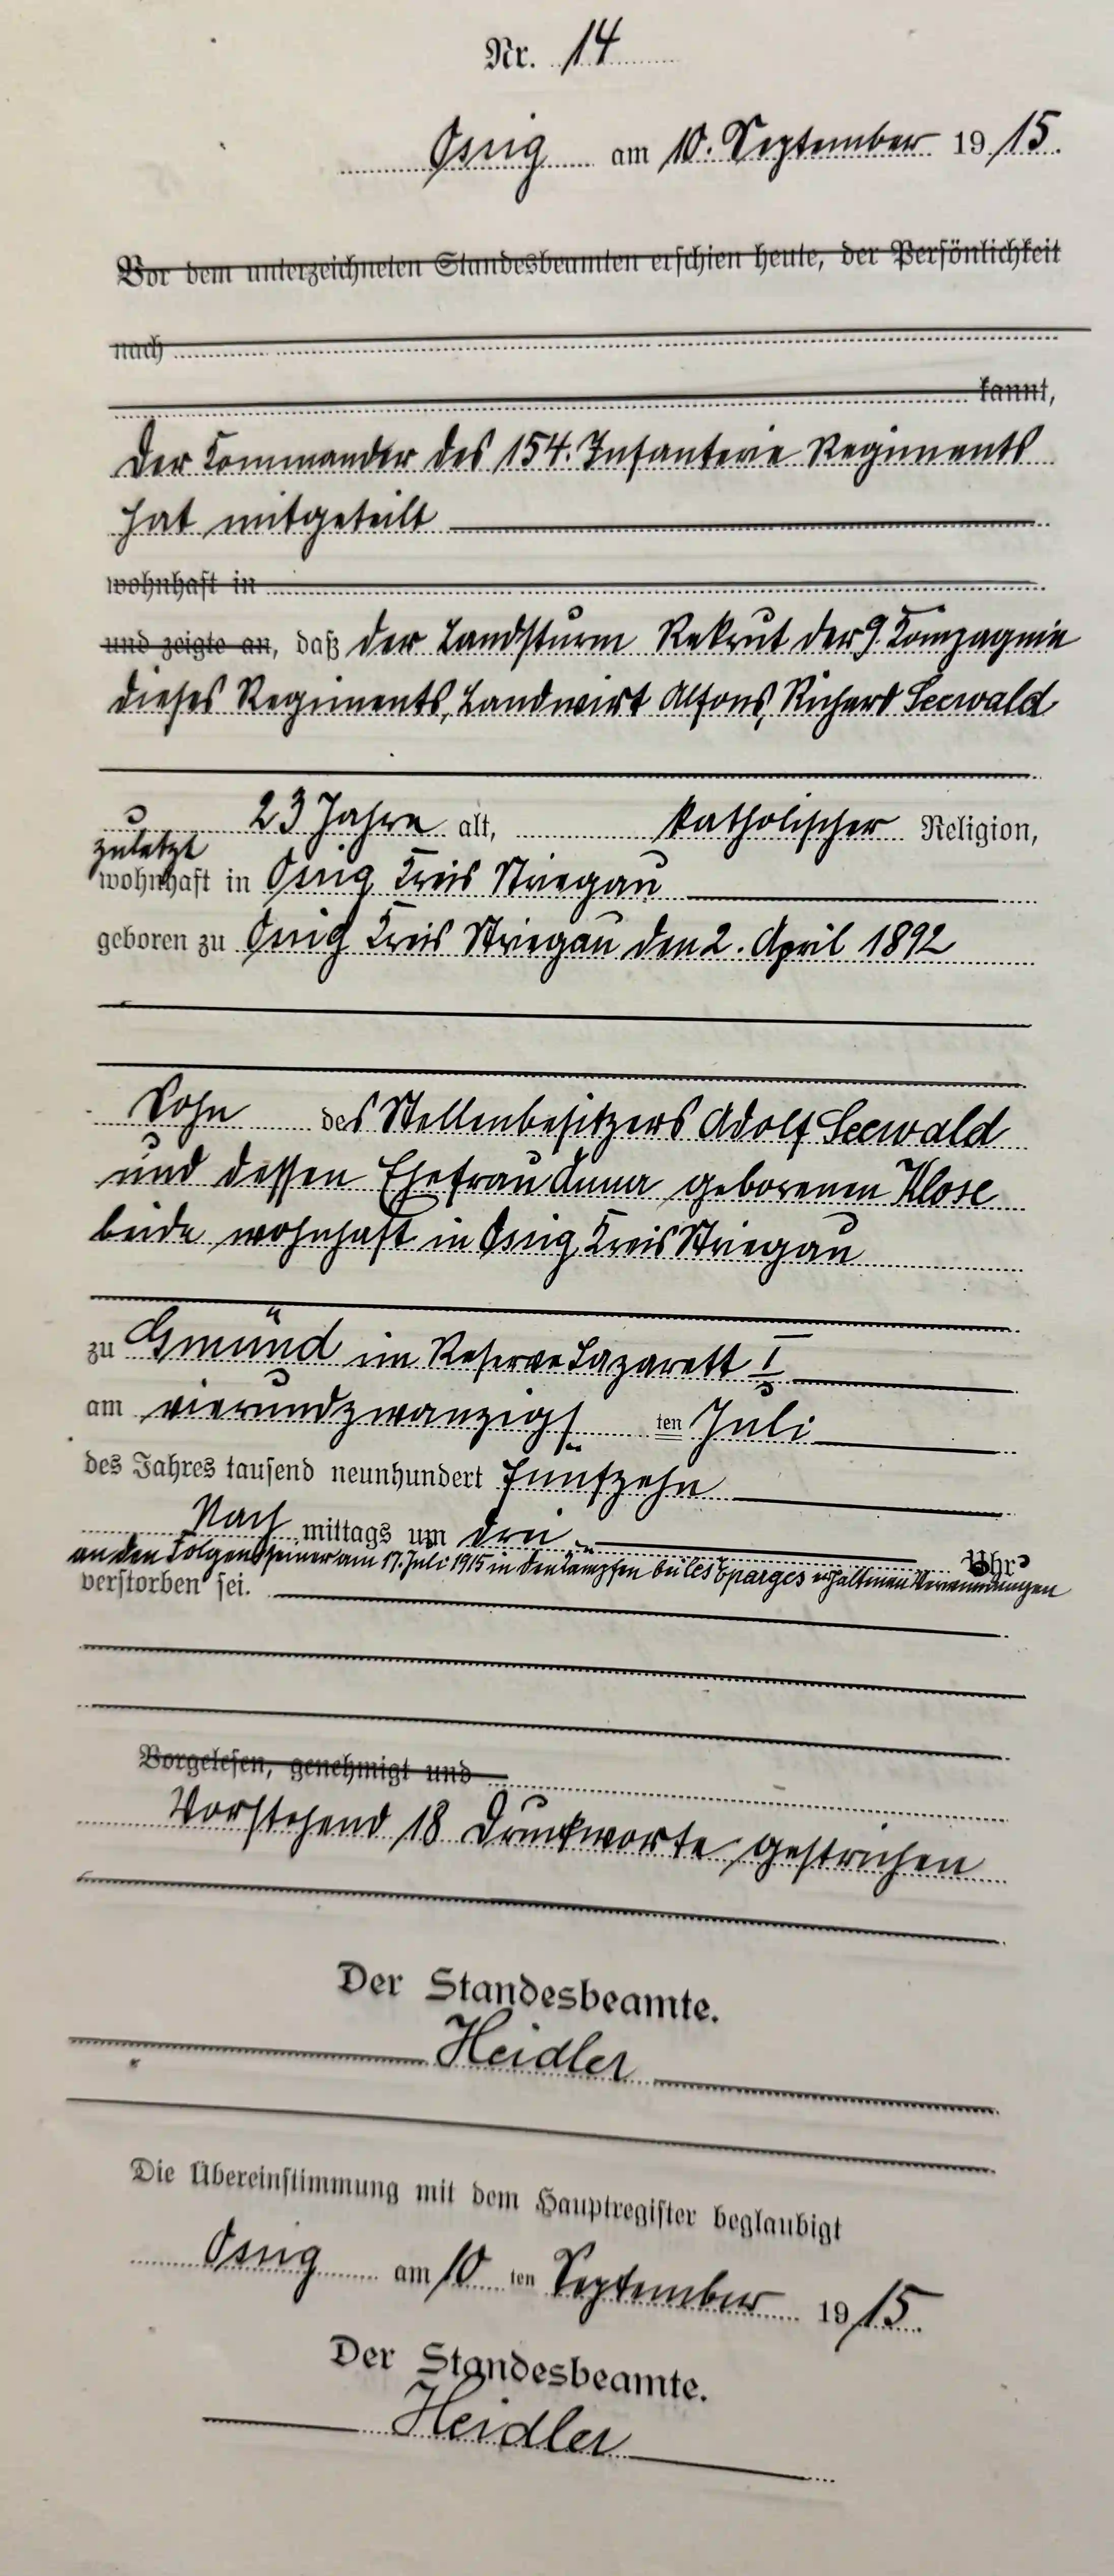 Nr. 14
Ossig am 10. September 1915.
Vor dem unterzeichneten Standesbeamten erschien heute, der Persönlichkeit
nach
kannt,
Der Commander des 154. Infanterie Regiments
hat mitgeteilt
wohnhaft in
und zeigte an, daß der Landsturm Rekrut der 9. Compagnie
dieses Regiments, Landwirt Alfons, Richard Seewald
23 Jahre alt, katholischer Religion,
zuletzt
wohnhaft in Ossig Kreis Striegau
geboren zu Ossig Kreis Striegau den 2. April 1892
Sohn des Stellenbesitzers Adolf Seewald
und dessen Ehefrau Anna geborenen Klose
beide wohnhaft in Ossig, Kreis Striegau
zu Gmünd im Reserve Lazarett I
am vierundzwanzigs ten Juli
des Jahres tausend neunhundert fünfzehn
Nach mittags um drei Uhr
an den Folgen seiner am 17. Juli 1915 in den Kämpfen bei Les Eparges erhaltenen Verwundungen
verstorben sei.
Vorgelesen, genehmigt und
Vorstehend 18 Druckworte gestrichen
Der Standesbeamte.
Heidler
Die Übereinstimmung mit dem Hauptregister beglaubigt
Ossig am 10 ten September 1915.
Der Standesbeamte.
Heidler